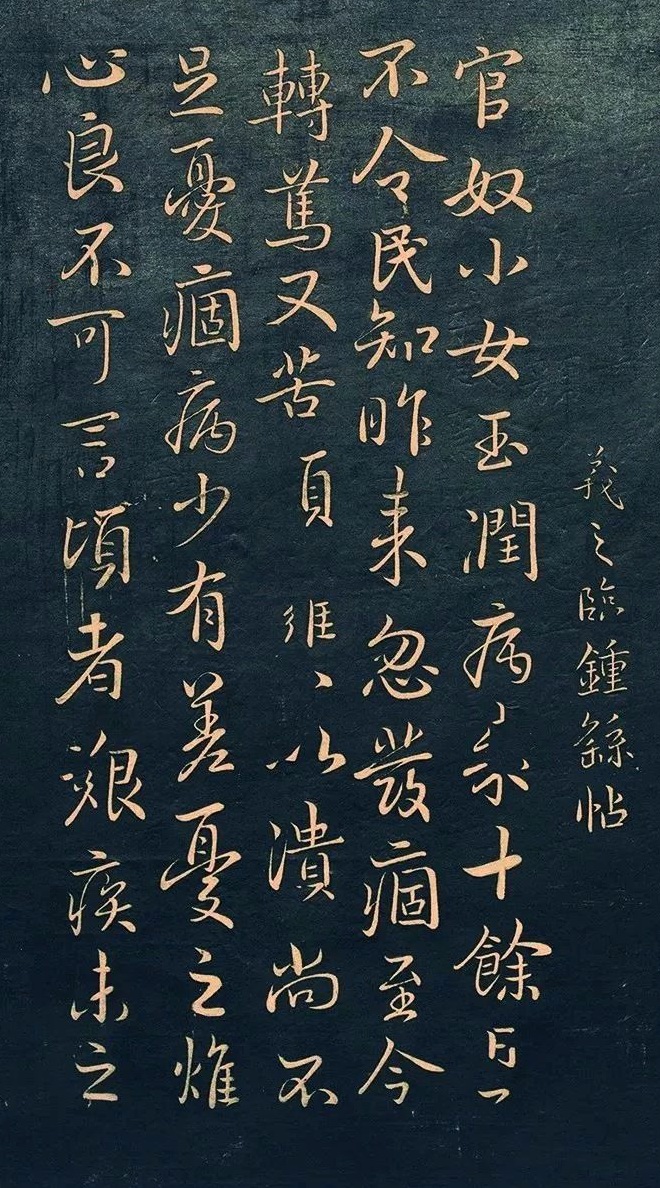 羲之臨鍾繇帖
官奴小女玉潤病十餘日
不令民知昨来忽發痼至今
轉篤又苦頁以潰尚不
足憂痼病少有差憂之燋
心良不可言頃者艱疾未之